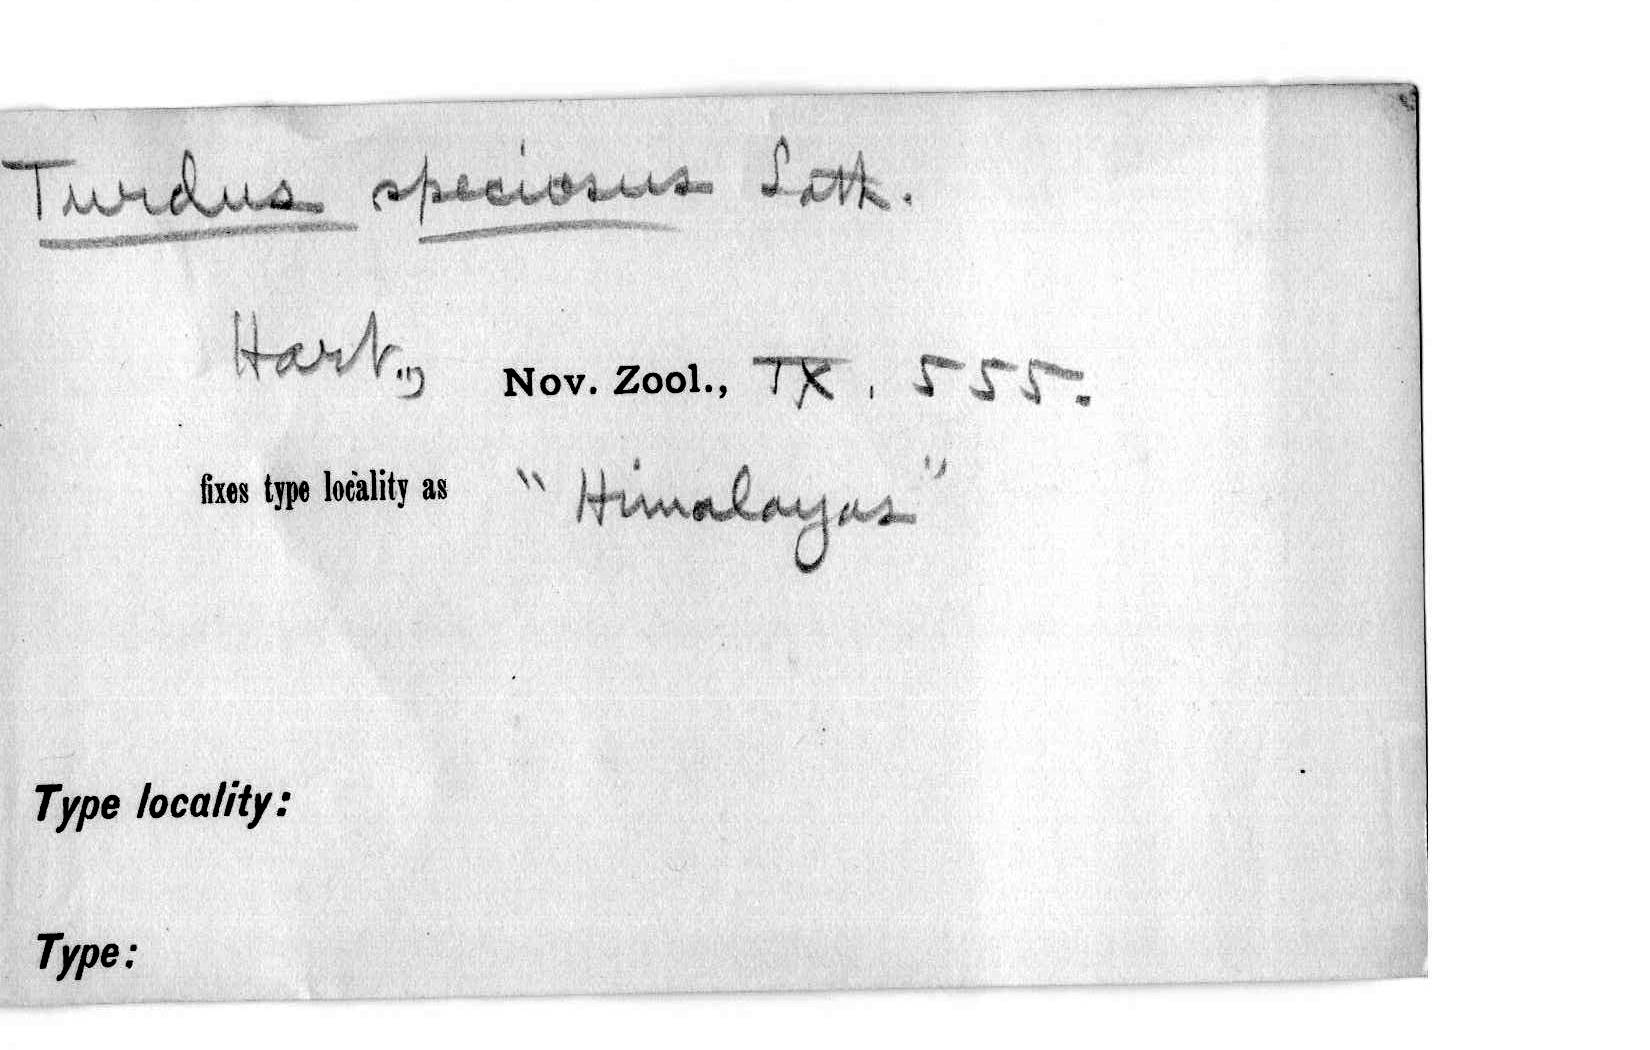 Turdus speciosus Lath.
Hart., Nov. Zool., IX, 555.
fixes type locality as "Himalayas"
Type locality:
Type: